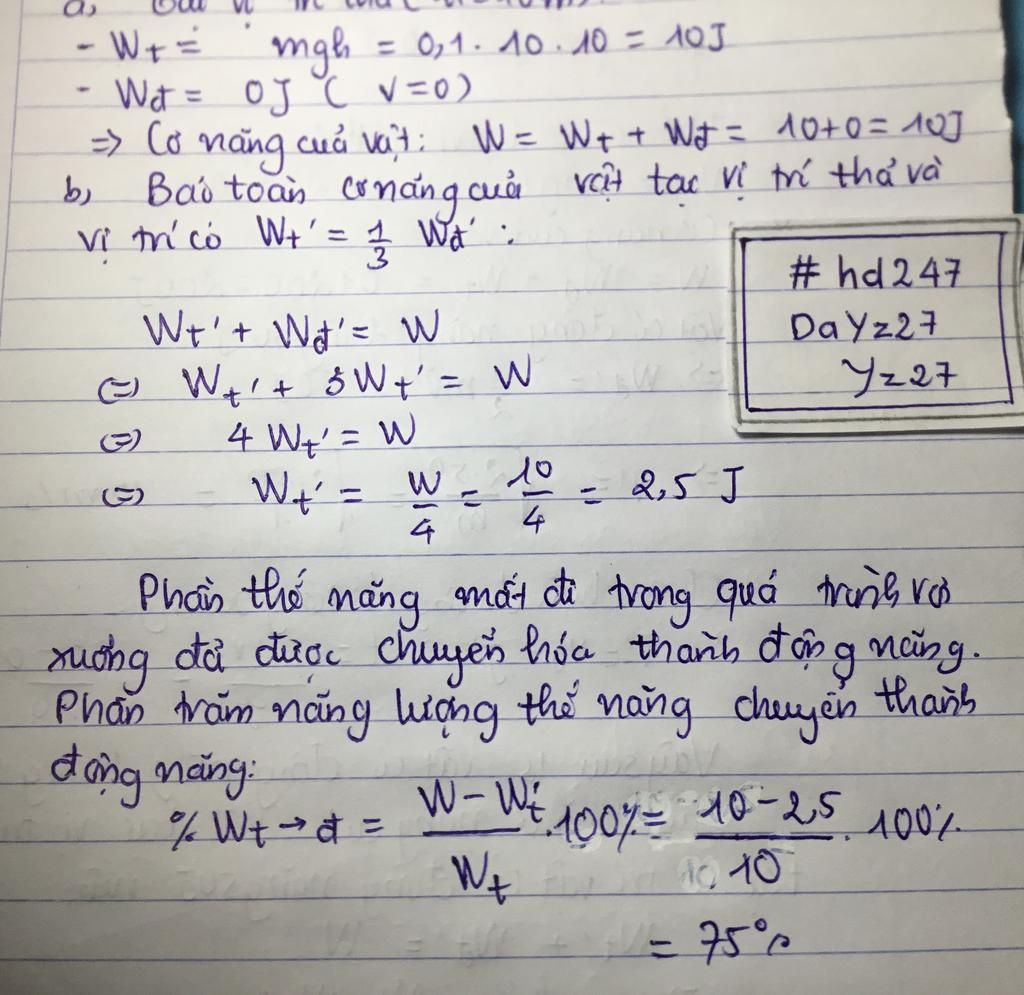 a,
- Wt = mgh = 0,1. 10. 10 = 10J
- Wđ = 0J ( v=0)
=> Cơ năng cuả vật: W = Wt + Wđ = 10+0 = 10J
b, Baỏ toàn cơ năng cuả vật tạc vị trí thả và
vị trí có Wt' = 1/3 Wđ' :
# hd247
DaYz27
Yz27
Wt' + Wđ' = W
(=) Wt' + 3Wt' = W
(=) 4 Wt' = W
(=) Wt' = W/4 = 10/4 = 2,5 J
Phần thế năng mất đi trong quá trình rơi
xuống đã được chuyển hóa thành động năng.
Phần trăm năng lượng thế năng chuyển thành
động năng:
% Wt → đ = (W - Wt')/Wt .100% = (10 - 2,5)/10 . 100%
= 75%